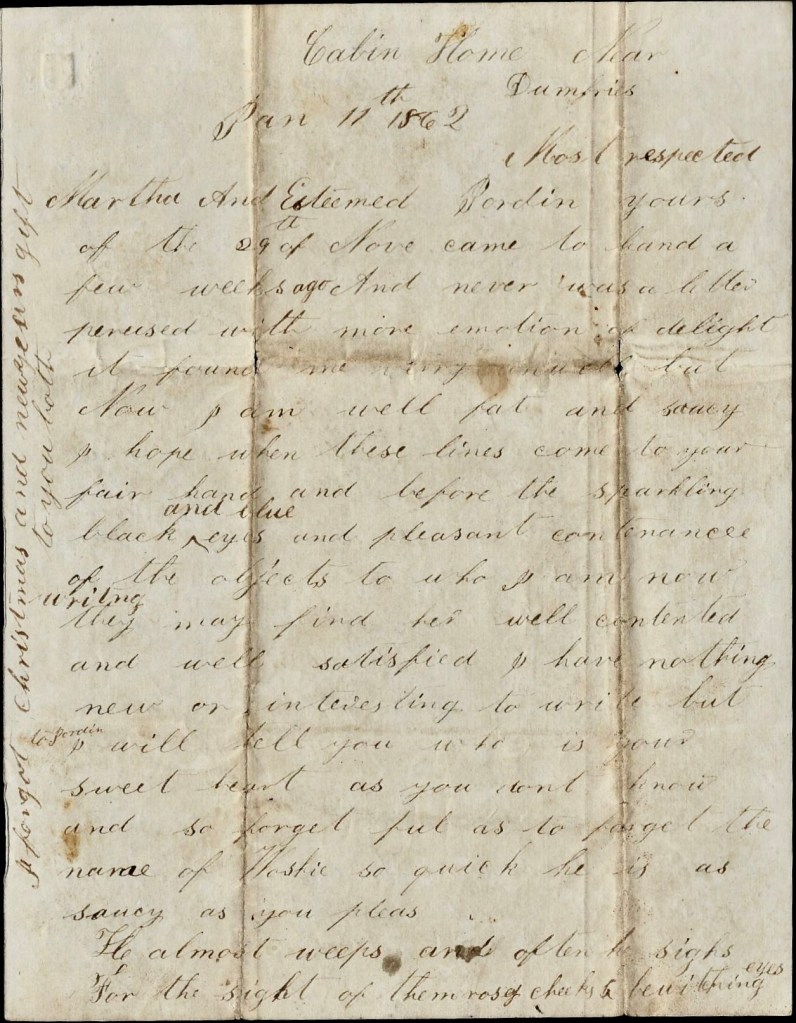 Cabin Home Near
Dumfries
Jan 11th 1862
Most respected
Martha And Esteemed Jordin yours
of the 29th of Nove came to hand a
few weeks ago And never was a letter
perused with more emotion of delight
it found me very unwell but
Now I am well fat and saucy
I hope when these lines come to your
fair hand and before the sparkling
and blue
black ^ eyes and pleasant contenances
of the objects to who I am now
writing
they may find her well contented
and well satisfied I have nothing
new or interesting to write but
to Jordin
I will tell you who is your
sweet heart as you dont know
and so forget ful as to forget the
name of so quick he is as
saucy as you pleas
He almost weeps and often he sighs
For the sight of them rosy cheeks & bewitching eyes
I forgot Christmas and newyears gift
to you both